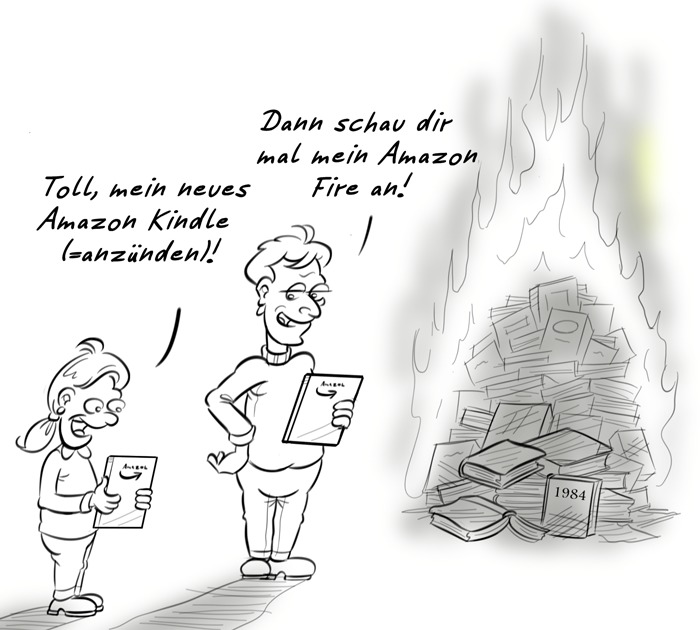 Dann schau dir
mal mein Amazon
Fire an!
Toll, mein neues
Amazon Kindle
(=anzünden)!
Amazon
Amazon
1984